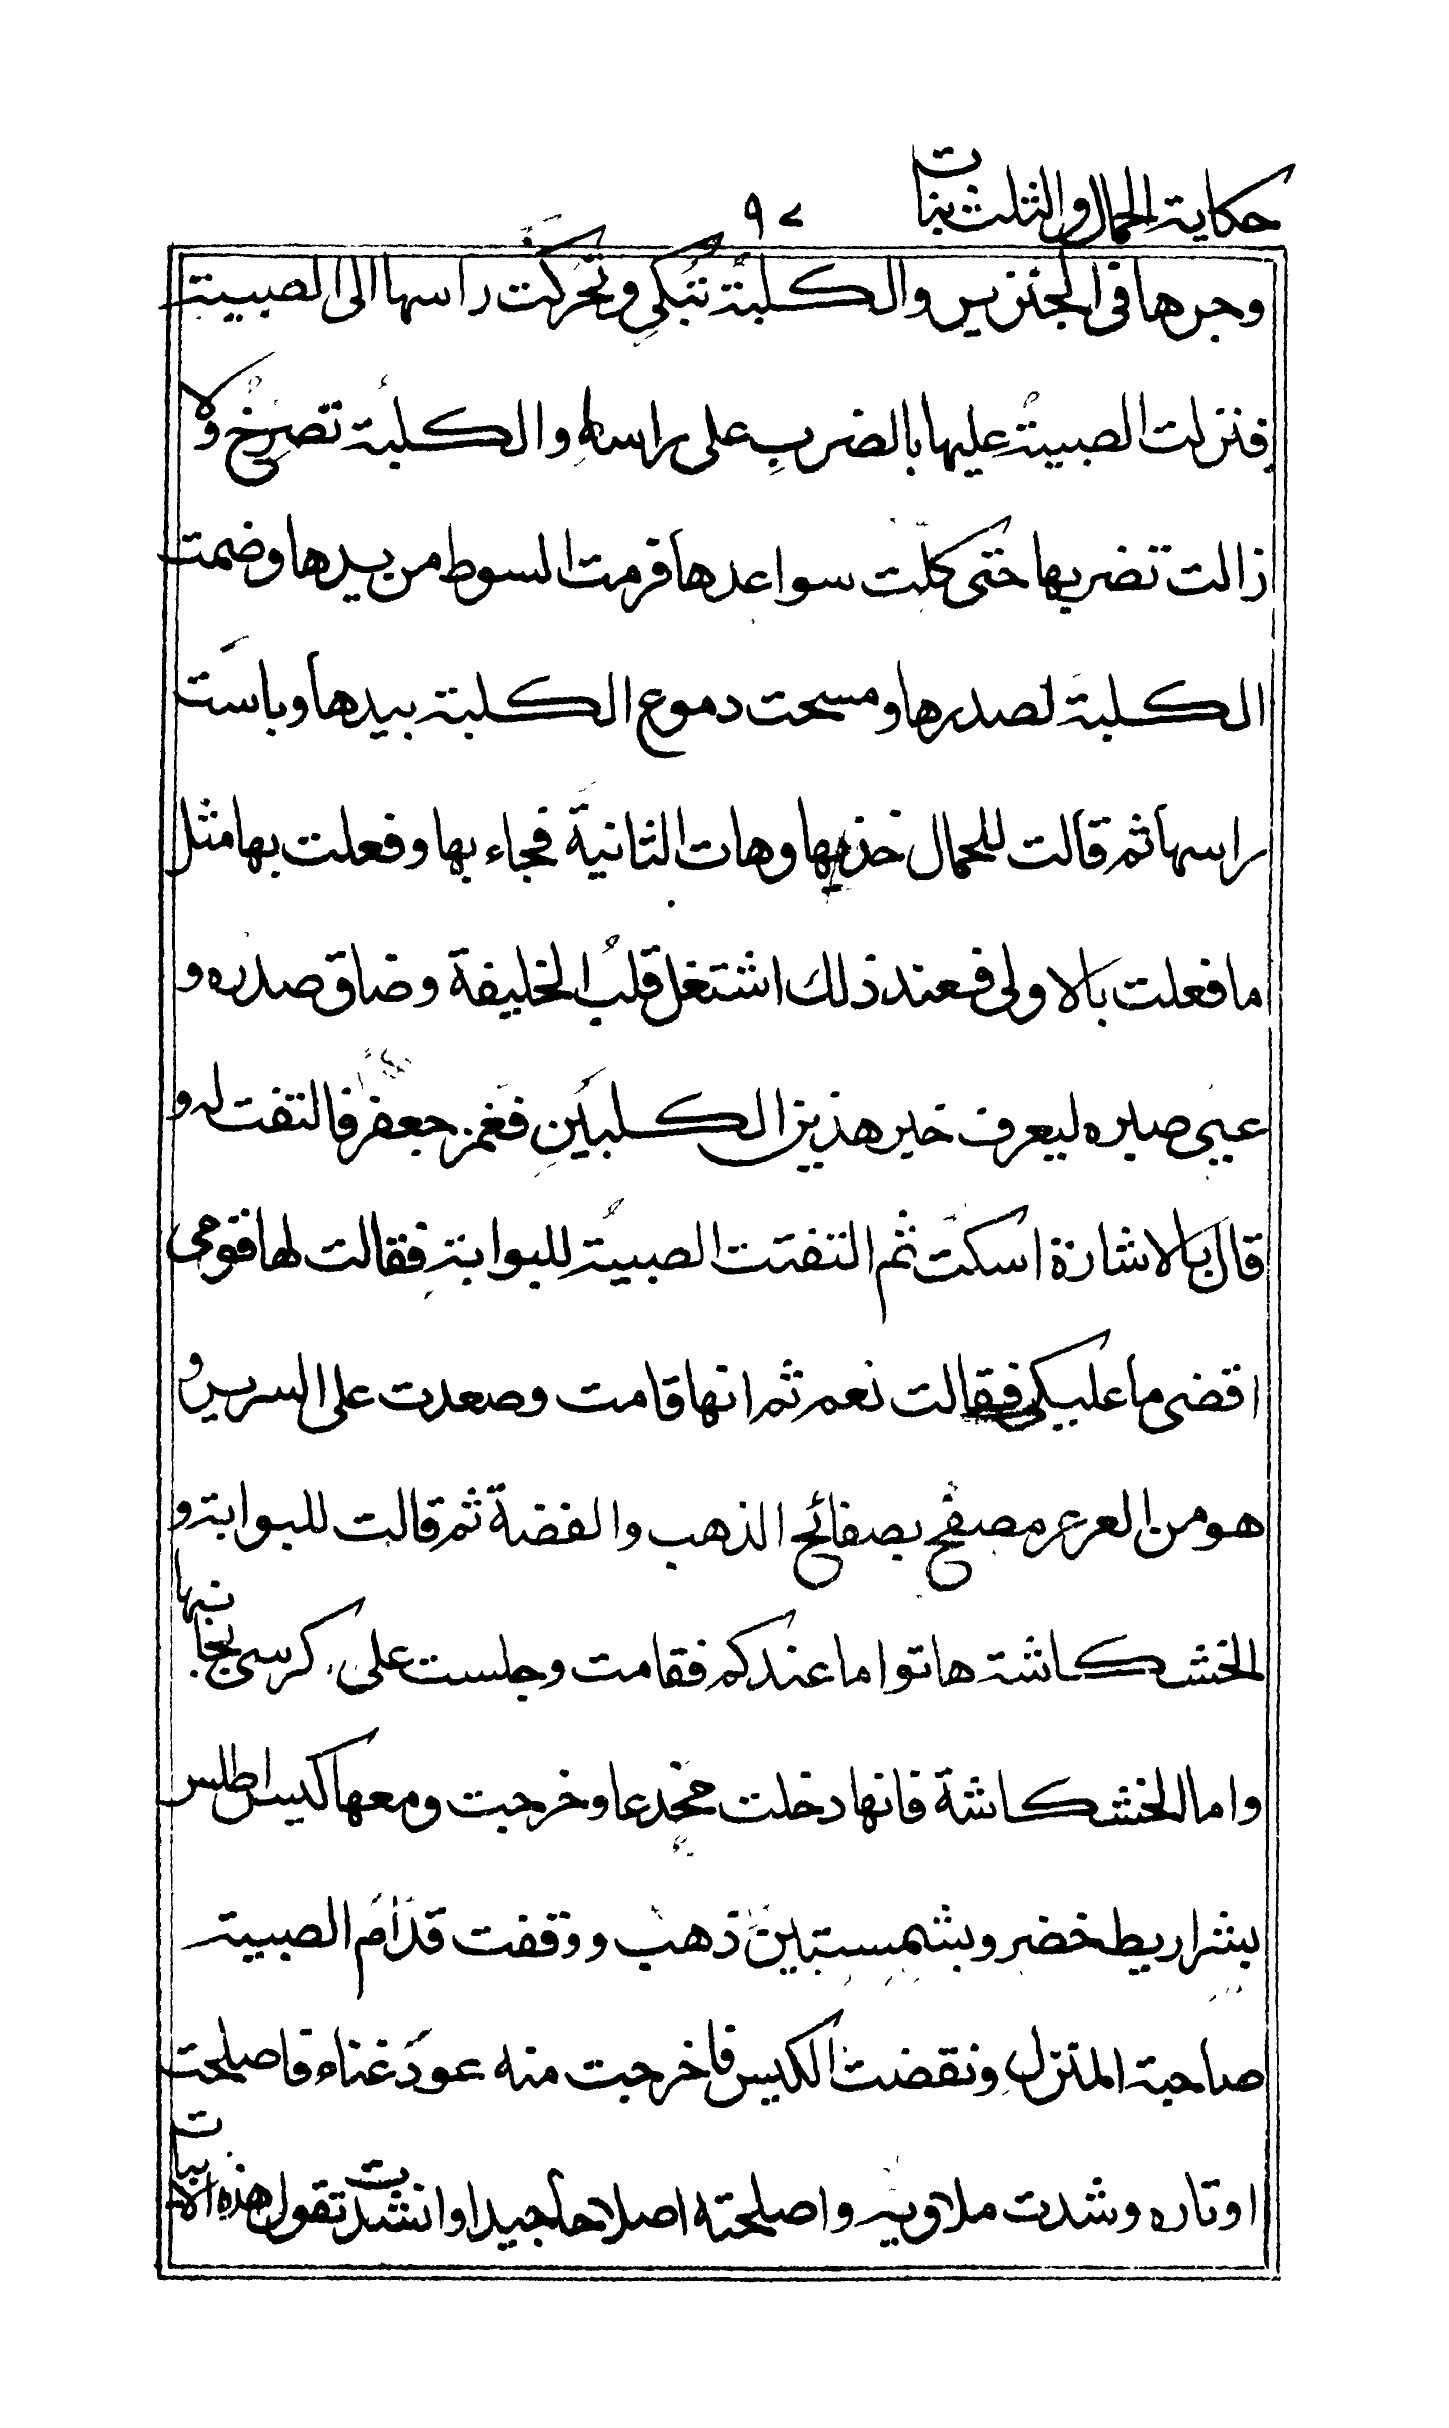 حكاية الحمال والثلث بنات
٩٧
وجرها فى الجنزير والكلبة تبكي وتحركت راسها الى الصبية
فنزلت الصبية عليها بالضرب على راسها والكلبة تصرخ ولا
زالت تضربها حتى كلت سواعدها فرمت السوط من يدها وضمت
الكلبة لصدرها ومسحت دموع الكلبة بيدها وباست
راسها ثم قالت للحمال خذيها وهات الثانية فجاء بها وفعلت بها مثل
ما فعلت بالاولى فعند ذلك اشتغل قلب الخليفة وضاق صدره و
عيى صبره ليعرف خبر هذين الكلبتين فغمز جعفر فالتفت له و
قال بالاشارة اسكت ثم التفتت الصبية للبوابة فقالت لها قومى
اقضى ما عليكي فقالت نعم ثم انها قامت وصعدت على السرير و
هو من العرعر مصفح بصفائح الذهب والفضة ثم قالت للبوابة و
الخشكاشة هاتوا ما عندكم فقامت وجلست على كرسى بجانبها
واما الخشكاشة فانها دخلت مخدعا وخرجت ومعها كيس اطلس
بشراريط خضر وبشمستين ذهب ووقفت قدام الصبية
صاحبة المنزل ونقضت الكيس فاخرجت منه عود غناء فاصلحت
اوتاره وشدت ملاويه واصلحته اصلاحا جيدا وانشدت تقول هذه الابيات